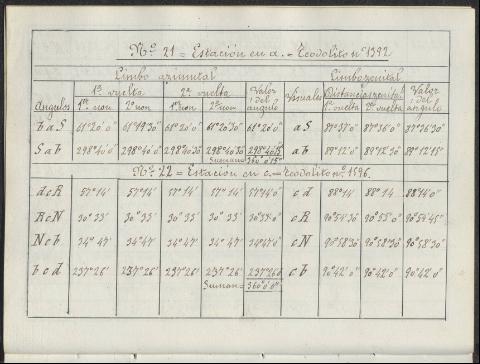 Nº 21 = Estación en a. = Teodolito nº 1392
Limbo azimutal Limbo zenital
1ª vuelta 2ª vuelta Valor del angulo Visuales Distancia zenital Valor del angulo
Angulos 1er non 2º non 1er non 2º non 1ª vuelta 2ª vuelta
b a S 61°20' 0" 61°19'30" 61°20' 0" 61°20'30" 61°20' 0" a S 87°37' 0" 87°36' 0" 87°36'30"
S a b 298°40' 0" 298°40' 0" 298°40'30" 298°40'30" 298°40'15" a b 89°12' 0" 89°12'30" 89°12'15"
Suman= 360°0'15"
Nº 22 = Estación en c. = Teodolito nº 1596.
d c R 57°14' 57°14' 57°14' 57°14' 57°14'0" c d 88°14' 88°14 88°14'0"
R c N 30°33' 30°33' 30°33' 30°33' 30°33'0" c R 90°54'30" 90°55' 0" 90°54'45"
N c b 34°47' 34°47' 34°47' 34°47' 34°47'0" c N 90°58'30" 90°58'30" 90°58'30"
b c d 237°26' 237°26' 237°26' 237°26' 237°26'0" c b 90°42' 0" 90°42' 0" 90°42' 0"
Suman= 360°0'0"